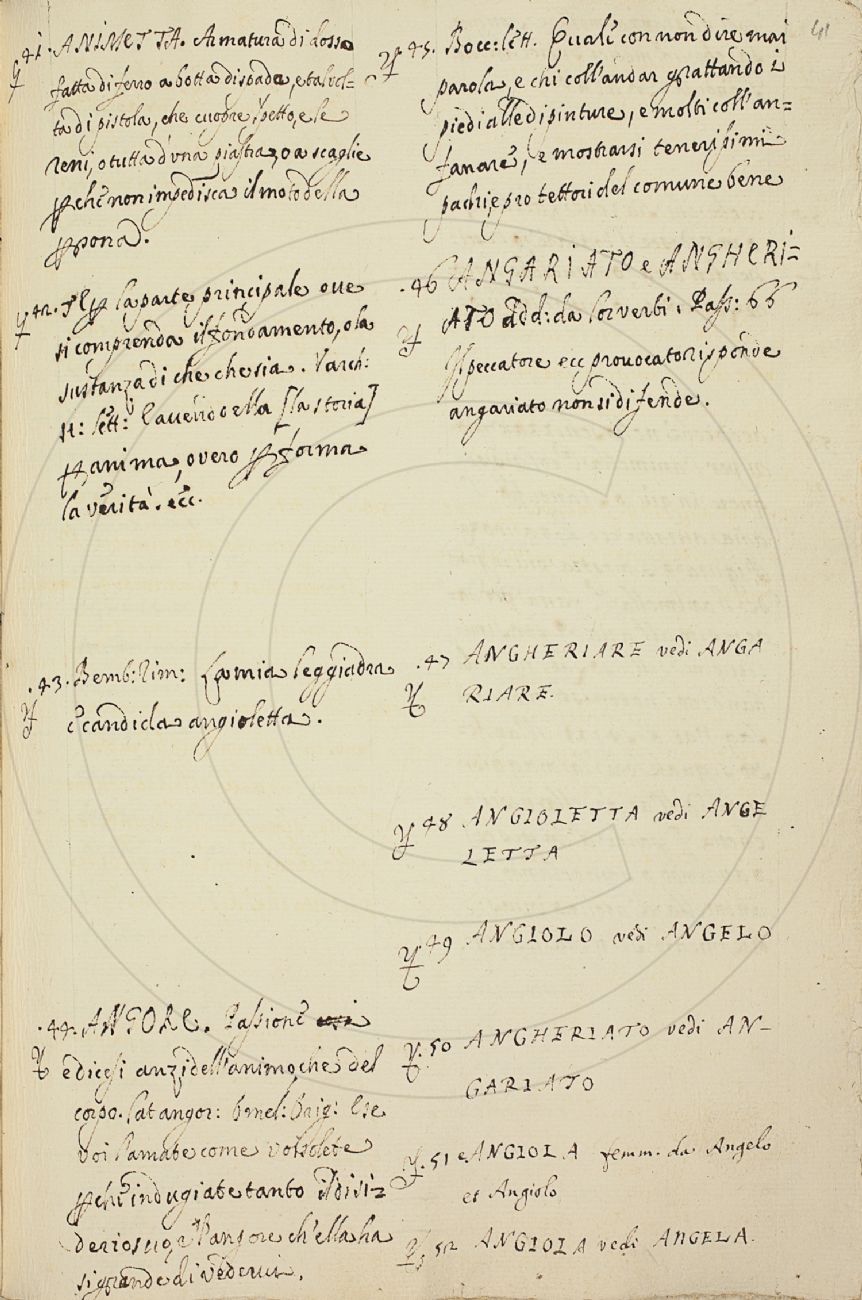 41. ANIMETTA. Armatura di dosso
fatta di ferro a botta di spada, e talvol-
ta di pistola, che cuopre 'l petto, e le
reni, o tutta d'una piastra, o a scaglie
ꝑchè non impedisca il moto della
ꝑsona.
42. ꝑ la parte principale ove
si comprenda il fondamento, o la
sustanza di che che sia. Varch:
st: lett: l'avendo ella [la storia]
ꝑ anima, overo ꝑ forma
la verità. ecc.
43. Bemb: Rim: La mia leggiadra
e candida angioletta.
44. ANGORE. Passione
e dicesi anzi dell'animo che del
corpo. Lat angor:
voi l'amate come volete
ꝑchè indugiate tanto il disi-
derio suo, e l'angore ch'ella ha
si grande di vedervi.
41
45. Bocc: lett. Quale con non dire mai
parola, e chi coll'andar grattando i
piedi alle dipinture, e molti coll'an=
fanare, e mostrarsi tenerissimi
padri, e protettori del comune bene
46 ANGARIATO e ANGHERI-
ATO add: da lor verbi. Pass: 66
Il peccatore ecc provocato risponde
angariato non si difende.
47 ANGHERIARE vedi ANGA
RIARE.
48 ANGIOLETTA vedi ANGE
LETTA
49 ANGIOLO vedi ANGELO
50 ANGHERIATO vedi AN-
GARIATO
51 ANGIOLA femm. da Angelo
et Angiolo
52 ANGIOLA vedi ANGELA.